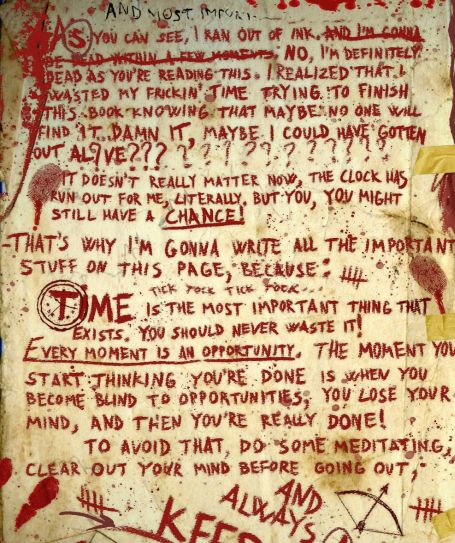 AND MOST IMPOR
AS YOU CAN SEE, I RAN OUT OF INK. AND I'M GONNA
BE DEAD WITHIN A FEW MOMENTS. NO, I'M DEFINITELY
DEAD AS YOU'RE READING THIS. I REALIZED THAT I
WASTED MY FRICKIN' TIME TRYING TO FINISH
THIS BOOK KNOWING THAT MAYBE NO ONE WILL
FIND IT. DAMN IT, MAYBE I COULD HAVE GOTTEN
OUT AL?VE??? ? ? ? ? ? ? ? ? ? ?
IT DOESN'T REALLY MATTER NOW, THE CLOCK HAS
RUN OUT FOR ME, LITERALLY. BUT YOU, YOU MIGHT
STILL HAVE A CHANCE!
-THAT'S WHY I'M GONNA WRITE ALL THE IMPORTANT
STUFF ON THIS PAGE, BECAUSE:
TICK TOCK TICK TOCK...
TIME IS THE MOST IMPORTANT THING THAT
EXISTS. YOU SHOULD NEVER WASTE IT!
EVERY MOMENT IS AN OPPORTUNITY. THE MOMENT YOU
START THINKING YOU'RE DONE IS WHEN YOU
BECOME BLIND TO OPPORTUNITIES; YOU LOSE YOUR
MIND, AND THEN YOU'RE REALLY DONE!
TO AVOID THAT, DO SOME MEDITATING,
CLEAR OUT YOUR MIND BEFORE GOING OUT,
AND
ALWAYS
KEEP